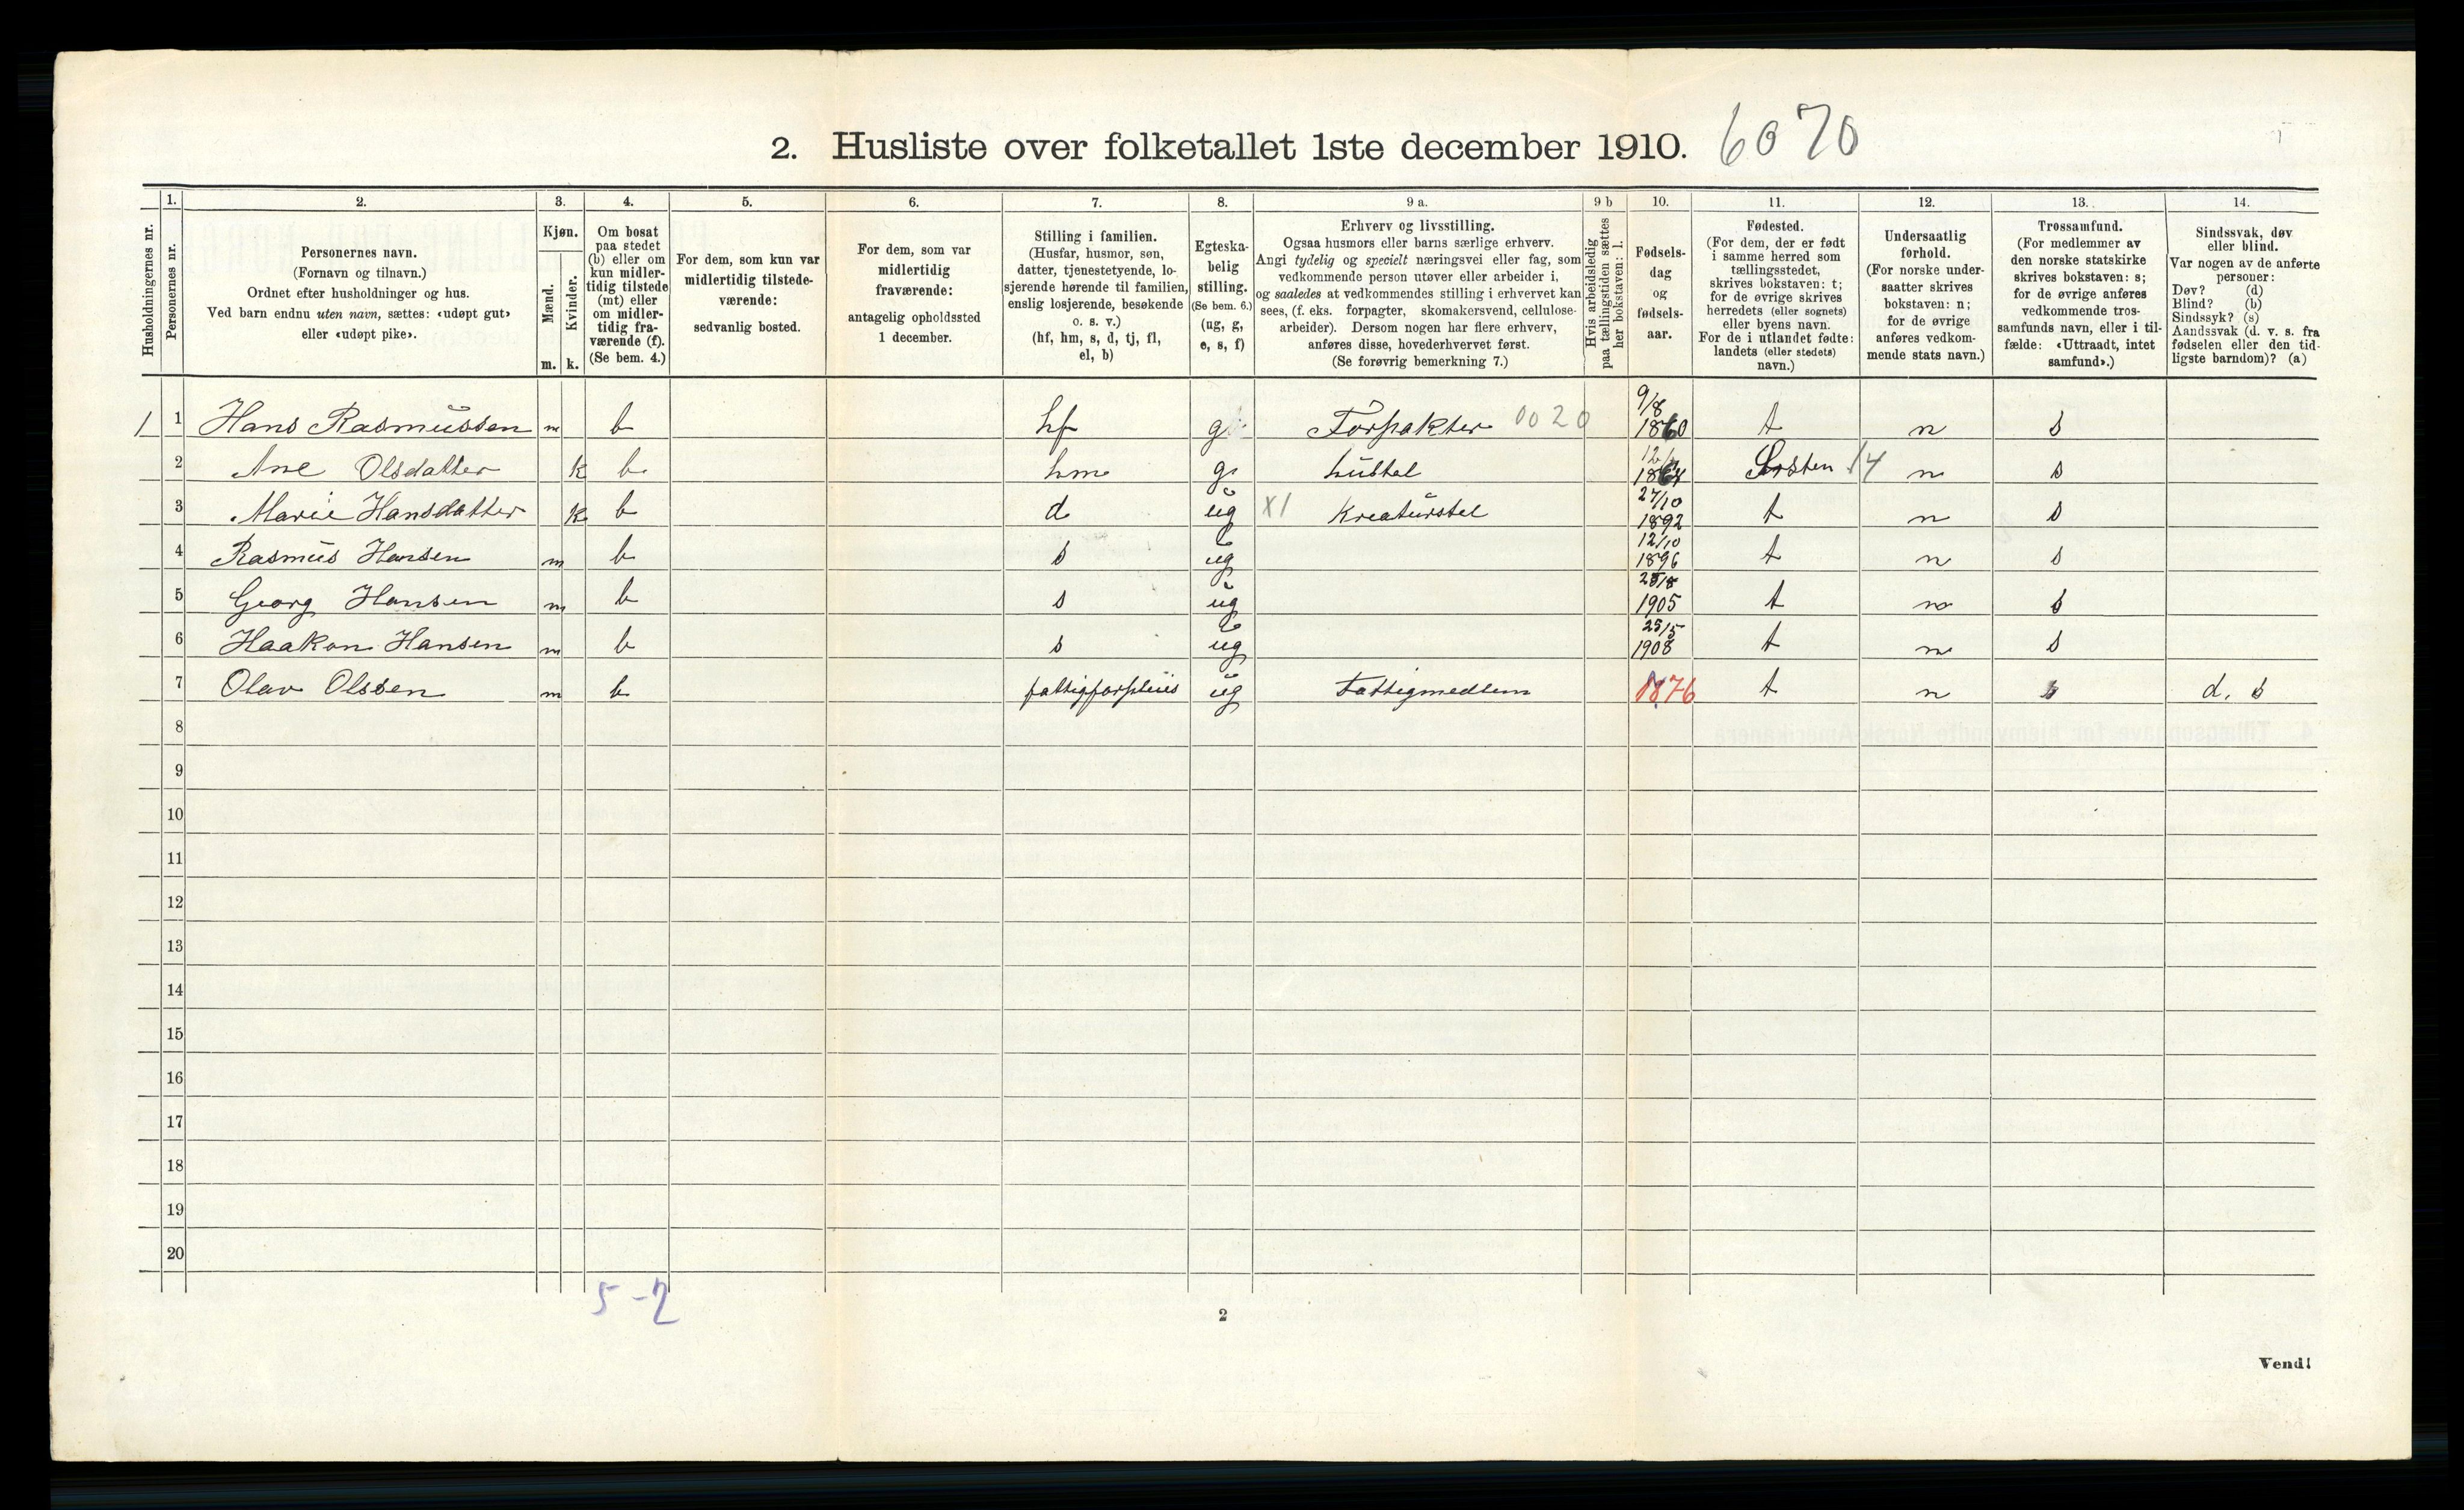 2. Husliste over folketallet 1ste december 1910. 6070
1. 2. 3. 4. 5. 6. 7. 8. 9 a. 9 b 10. 11. 12. 13. 14.
Husholdningernes nr.
Personernes nr.
Personernes navn.
(Fornavn og tilnavn.)
Ordnet efter husholdninger og hus.
Ved barn endnu uten navn, sættes: «udøpt gut»
eller «udøpt pike».
Kjøn.
Mænd.
Kvinder.
m. k.
Om bosat
paa stedet
(b) eller om
kun midler-
tidig tilstede
(mt) eller
om midler-
tidig fra-
værende (f).
(Se bem. 4.)
For dem, som kun var
midlertidig tilstede-
værende:
sedvanlig bosted.
For dem, som var
midlertidig
fraværende:
antagelig opholdssted
1 december.
Stilling i familien.
(Husfar, husmor, søn,
datter, tjenestetyende, lo-
sjerende hørende til familien,
enslig losjerende, besøkende
o. s. v.)
(hf, hm, s, d, tj, fl,
el, b)
Egteska-
belig
stilling.
(Se bem. 6.)
(ug, g,
e, s, f)
Erhverv og livsstilling.
Ogsaa husmors eller barns særlige erhverv.
Angi tydelig og specielt næringsvei eller fag, som
vedkommende person utøver eller arbeider i,
og saaledes at vedkommendes stilling i erhvervet kan
sees, (f. eks. forpagter, skomakersvend, cellulose-
arbeider). Dersom nogen har flere erhverv,
anføres disse, hovederhvervet først.
(Se forøvrig bemerkning 7.)
Hvis arbeidsledig
paa tællingstiden sættes
her bokstaven: l.
Fødsels-
dag
og
fødsels-
aar.
Fødested.
(For dem, der er født
i samme herred som
tællingsstedet,
skrives bokstaven: t;
for de øvrige skrives
herredets (eller sognets)
eller byens navn.
For de i utlandet fødte:
landets (eller stedets)
navn.)
Undersaatlig
forhold.
(For norske under-
saatter skrives
bokstaven: n;
for de øvrige
anføres vedkom-
mende stats navn.)
Trossamfund.
(For medlemmer av
den norske statskirke
skrives bokstaven: s;
for de øvrige anføres
vedkommende tros-
samfunds navn, eller i til-
fælde: «Uttraadt, intet
samfund».)
Sindssvak, døv
eller blind.
Var nogen av de anførte
personer:
Døv? (d)
Blind? (b)
Sindssyk? (s)
Aandssvak (d. v. s. fra
fødselen eller den tid-
ligste barndom)? (a)
1 1 Hans Rasmussen m b hf g Forpakter 0020 9/8 1860 t n s
2 Ane Olsdatter k b hm g hustel 1864 14 n s
3 Marie Hansdatter k b d ug X1 Kreaturstel 27/10 1892 t n s
4 Rasmus Hansen m b s ug 12/10 1896 t n s
5 Georg Hansen m b s ug 1905 t n s
6 Haakon Hansen m b s ug 25/5 1908 t n s
7 Olav Olssen m b fattigforpleiis ug Fattigmedlem 1876 t n s d, s
8
9
10
11
12
13
14
15
16
17
18
19
20
5-2
2
Vend!